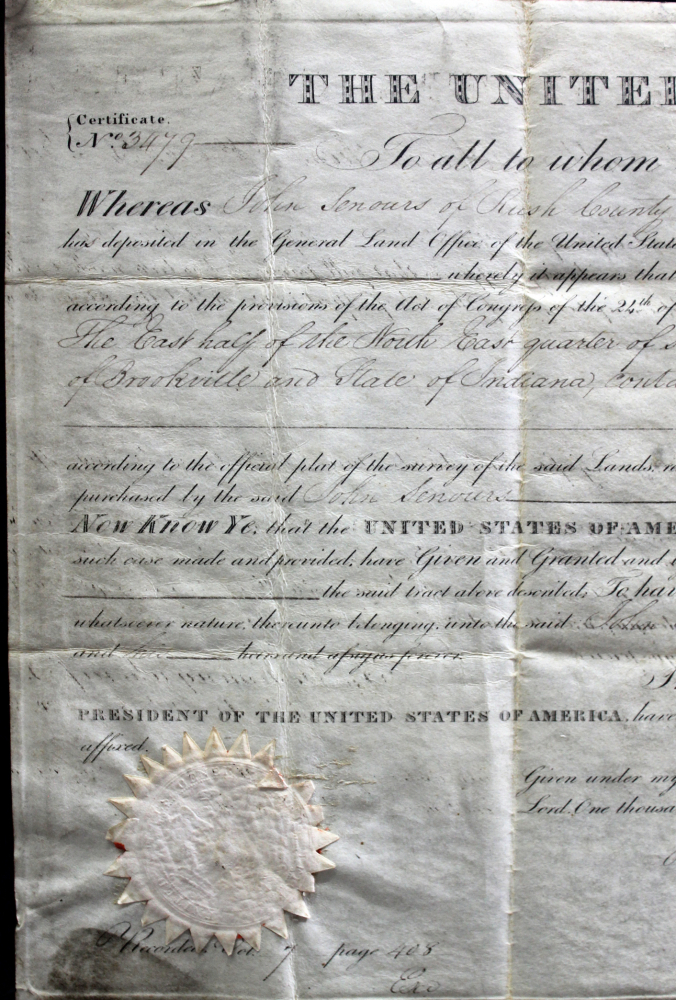 THE UNITE
Certificate.
No. 3479
To all to whom
Whereas John Senours of Rush County
has deposited in the General Land Office of the United Stat
whereby it appears that
according to the provisions of the Act of Congress of the 24th of
The East half of the North East quarter of s
of Brookville and State of Indiana, conta
according to the official plat of the survey of the said Lands, r
purchased by the said John Senours
Now Know Ye, that the UNITED STATES OF AME
such case made and provided, have Given and Granted and b
the said tract above described; To hav
whatsoever nature, thereunto belonging, unto the said John
and his heirs and assigns forever.
PRESIDENT OF THE UNITED STATES OF AMERICA, have
affixed.
Given under my
Lord One thousa
Recorded Vol. 7 page 408
Exd